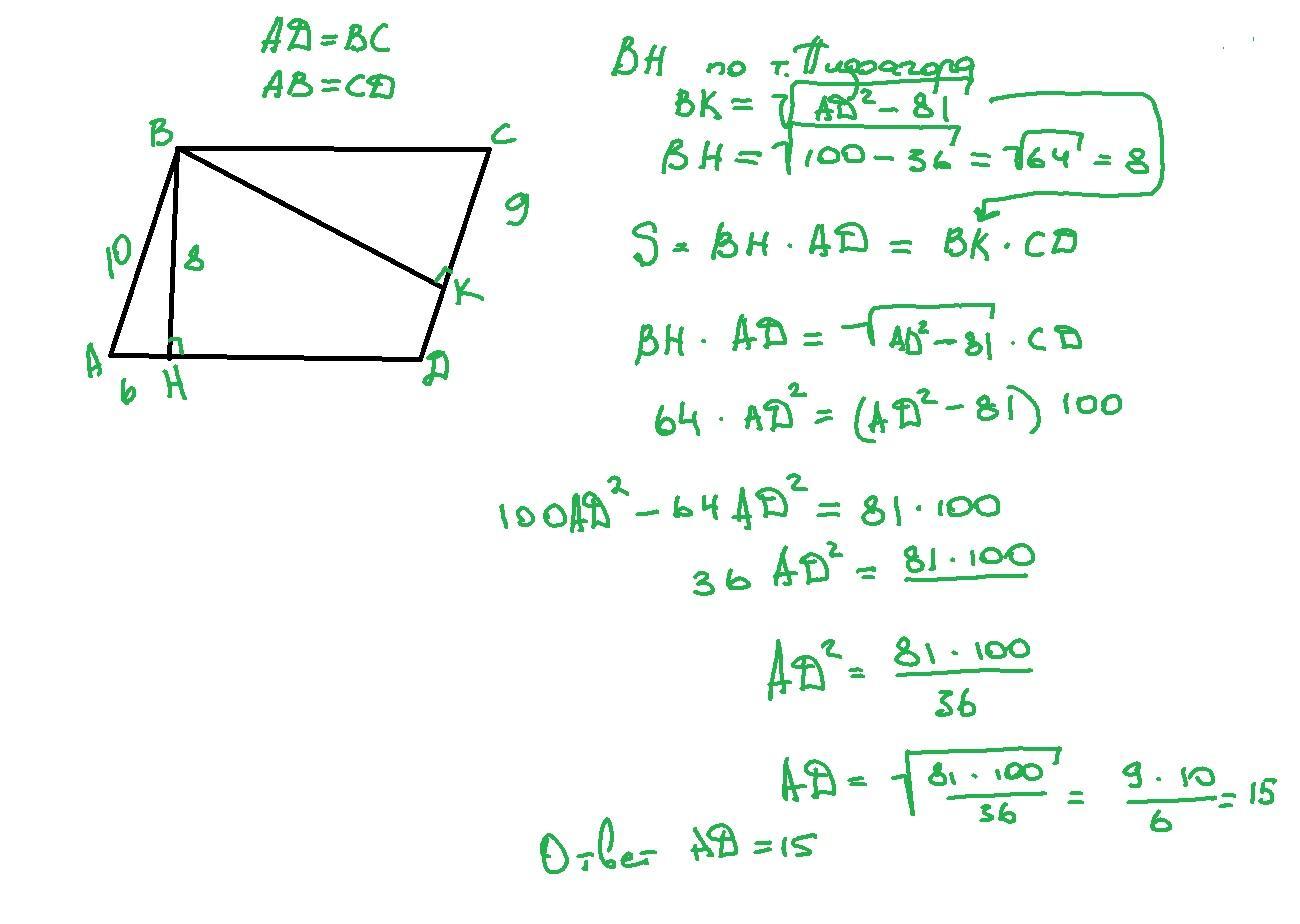 AD = BC
AB = CD
B
C
10
8
9
K
A
6
H
D
BH по т. Пифагора
BK = √(AD² - 81)
BH = √(100 - 36) = √64 = 8
S = BH · AD = BK · CD
BH · AD = √(AD² - 81) · CD
64 · AD² = (AD² - 81) 100
100AD² - 64AD² = 81 · 100
36 AD² = 81 · 100
AD² = 81 · 100 / 36
AD = √(81 · 100 / 36) = 9 · 10 / 6 = 15
Ответ AD = 15